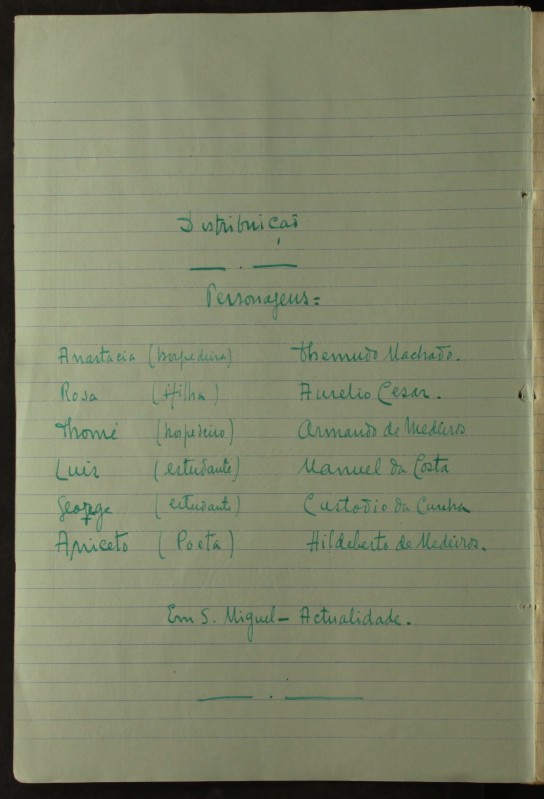 Distribuição
Personagens =
Anastacia (hospedeira) Themudo Machado.
Rosa (filha) Aurelio Cesar.
Thomé (hospedeiro) Armando de Medeiros
Luis (estudante) Manuel da Costa
George (estudante) Custodio da Cunha
Aniceto (Poeta) Hildeberto de Medeiros.
Em S. Miguel – Actualidade.